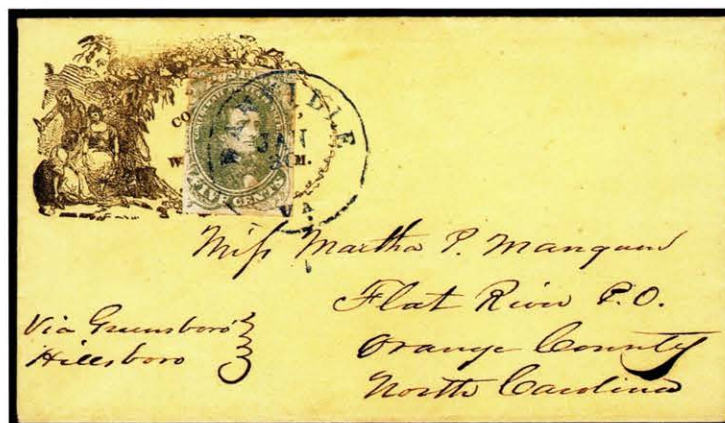 FIVE CENTS
JAN
VA
Miss Martha P. Mangum
Flat River P.O.
Orange County
North Carolina
Via Greensboro
Hillsboro